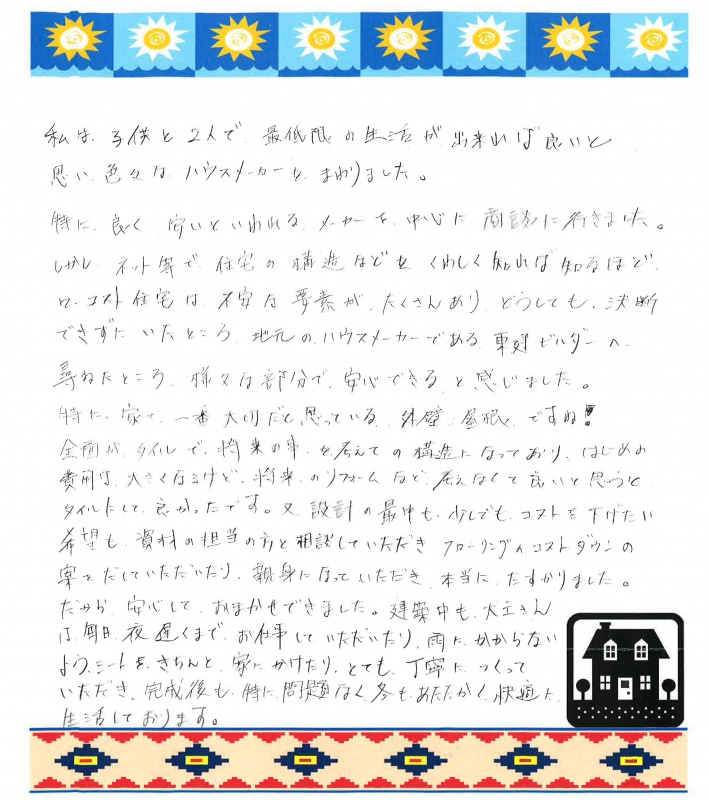 私は、子供と2人で、最低限の生活が出来れば良いと
思い、色々な、ハウスメーカーを、まわりました。
特に、良く、安いといわれる、メーカーを、中心に、商談に行きました。
しかし、ネット等で、住宅の構造などを、くわしく知れば知るほど、
ローコスト住宅は、不安な要素が、たくさんあり、どうしても、決断
できずに、いたところ、地元の、ハウスメーカーである、東建ビルダーへ、
尋ねたところ、様々な部分で、安心できる、と感じました。
特に、家で、一番大切だと思っている、外壁、屋根、ですね!
全面が、タイルで、将来の事、を考えての構造になっており、はじめの
費用は、大きくなるけど、将来、のリフォームなど、考えなくて良いと思うと
タイルにして、良かったです。又、設計の最中も、少しでも、コストを下げたい
希望も、資料の担当の方と相談していただき、フローリングのコストダウンの
案をだしていただいたり、親身になっていただき、本当に、たすかりました。
だから、安心して、おまかせできました。建築中も、大工さん
は、毎日、夜遅くまで、お仕事していただいたり、雨に、かからない
よう、シートを、きちんと、家にかけたり、とても、丁寧に、つくって
いただき、完成後も、特に、問題なく、冬も、あたたかく、快適に、
生活しております。